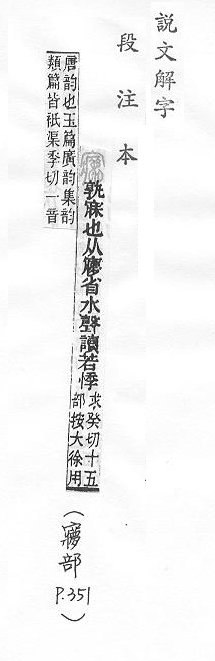 説文解字
段注本
孰寐也从㝱省水聲讀若悸
求癸切十五
部按大徐用
唐韵也玉篇廣韵集韵
類篇皆祇渠季切一音
(㝱部
P.351)